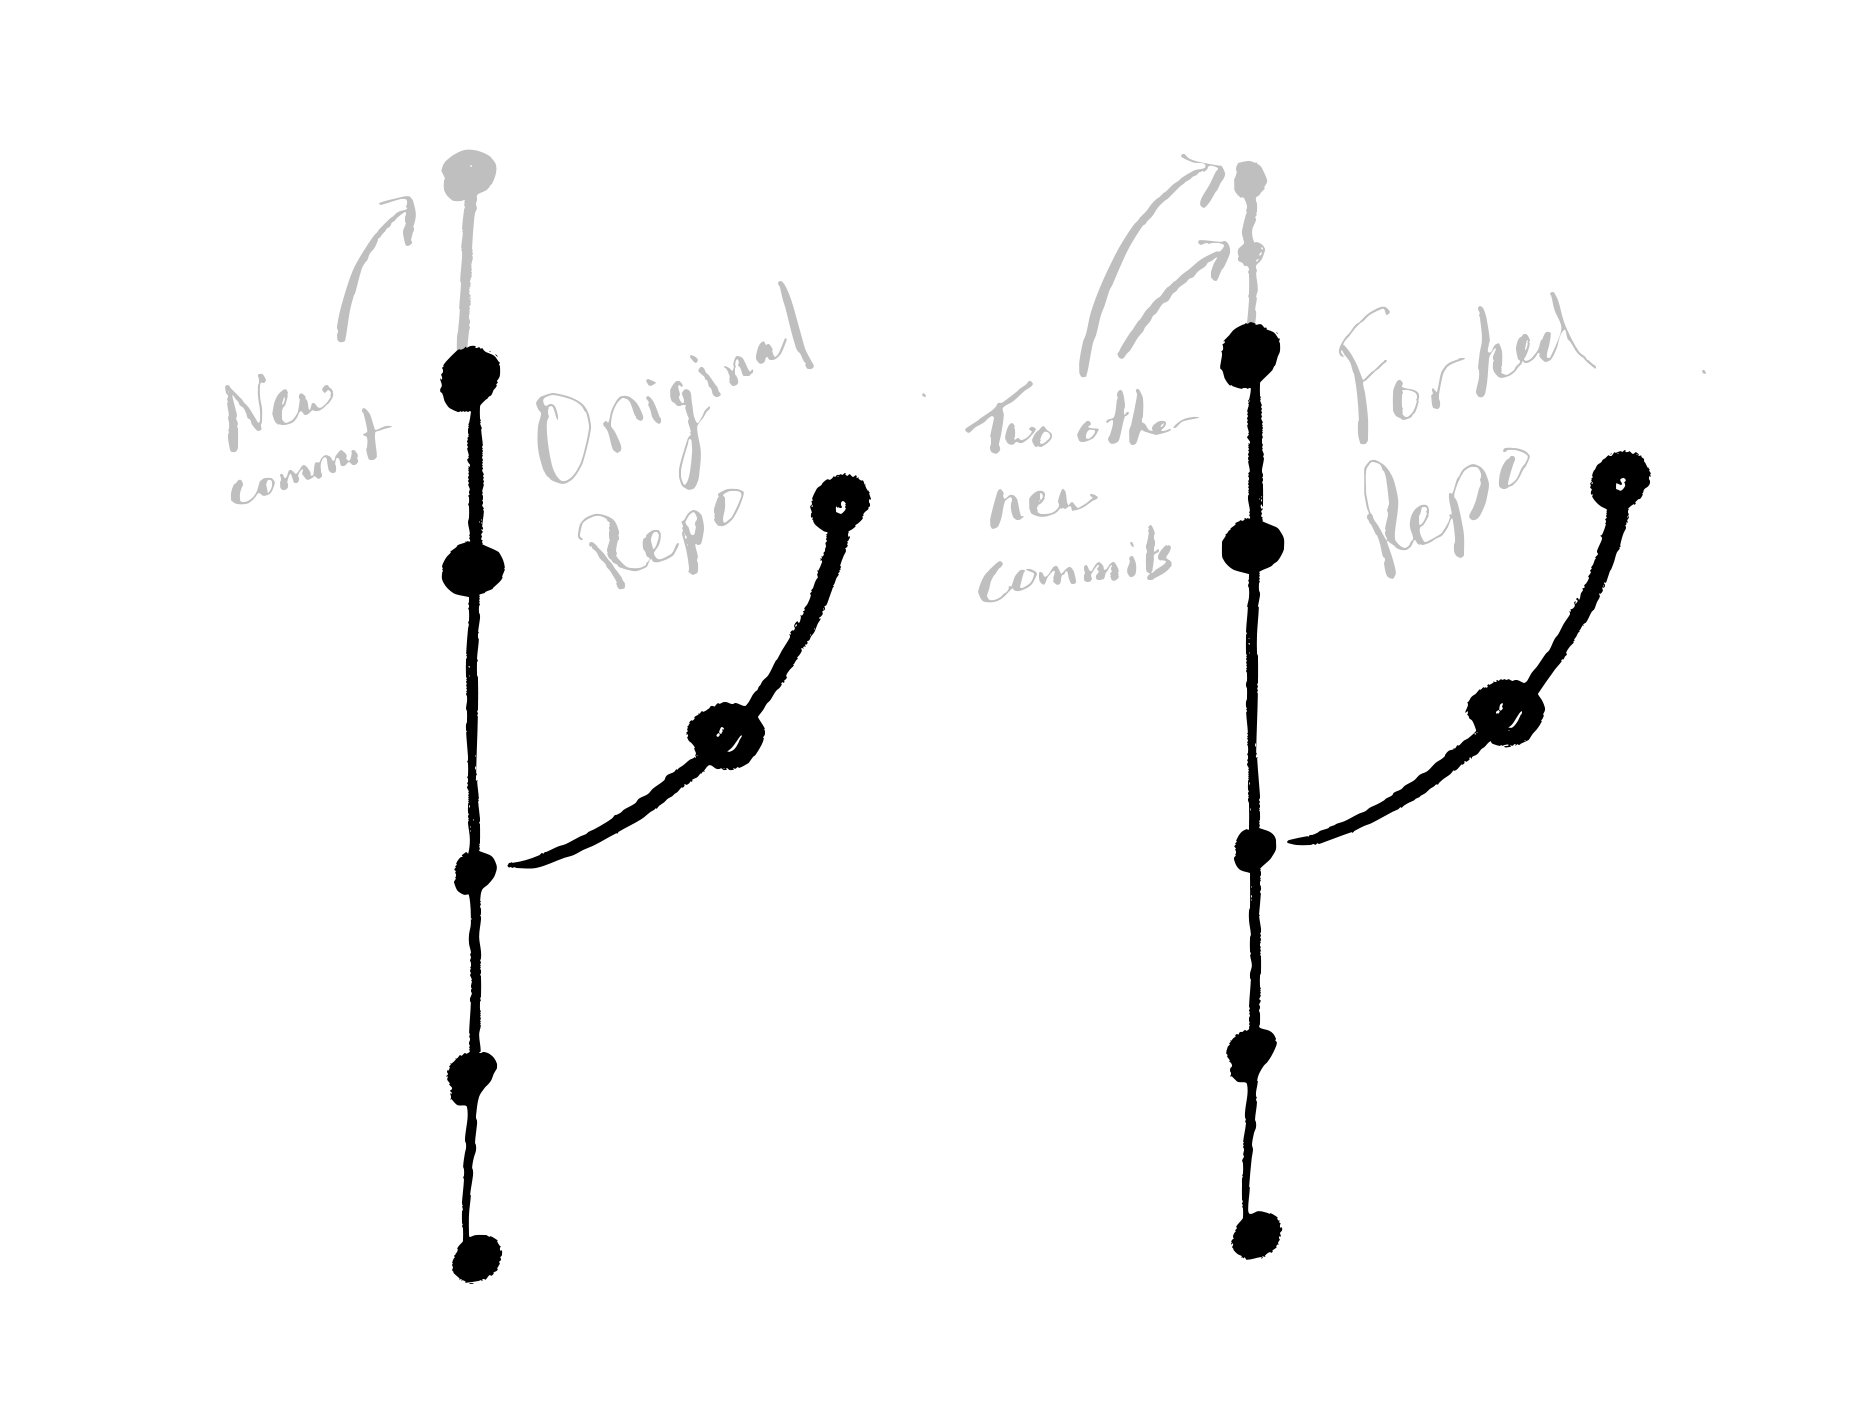 New
commit
Original
Repo
Two other
new
commits
Forked
Repo